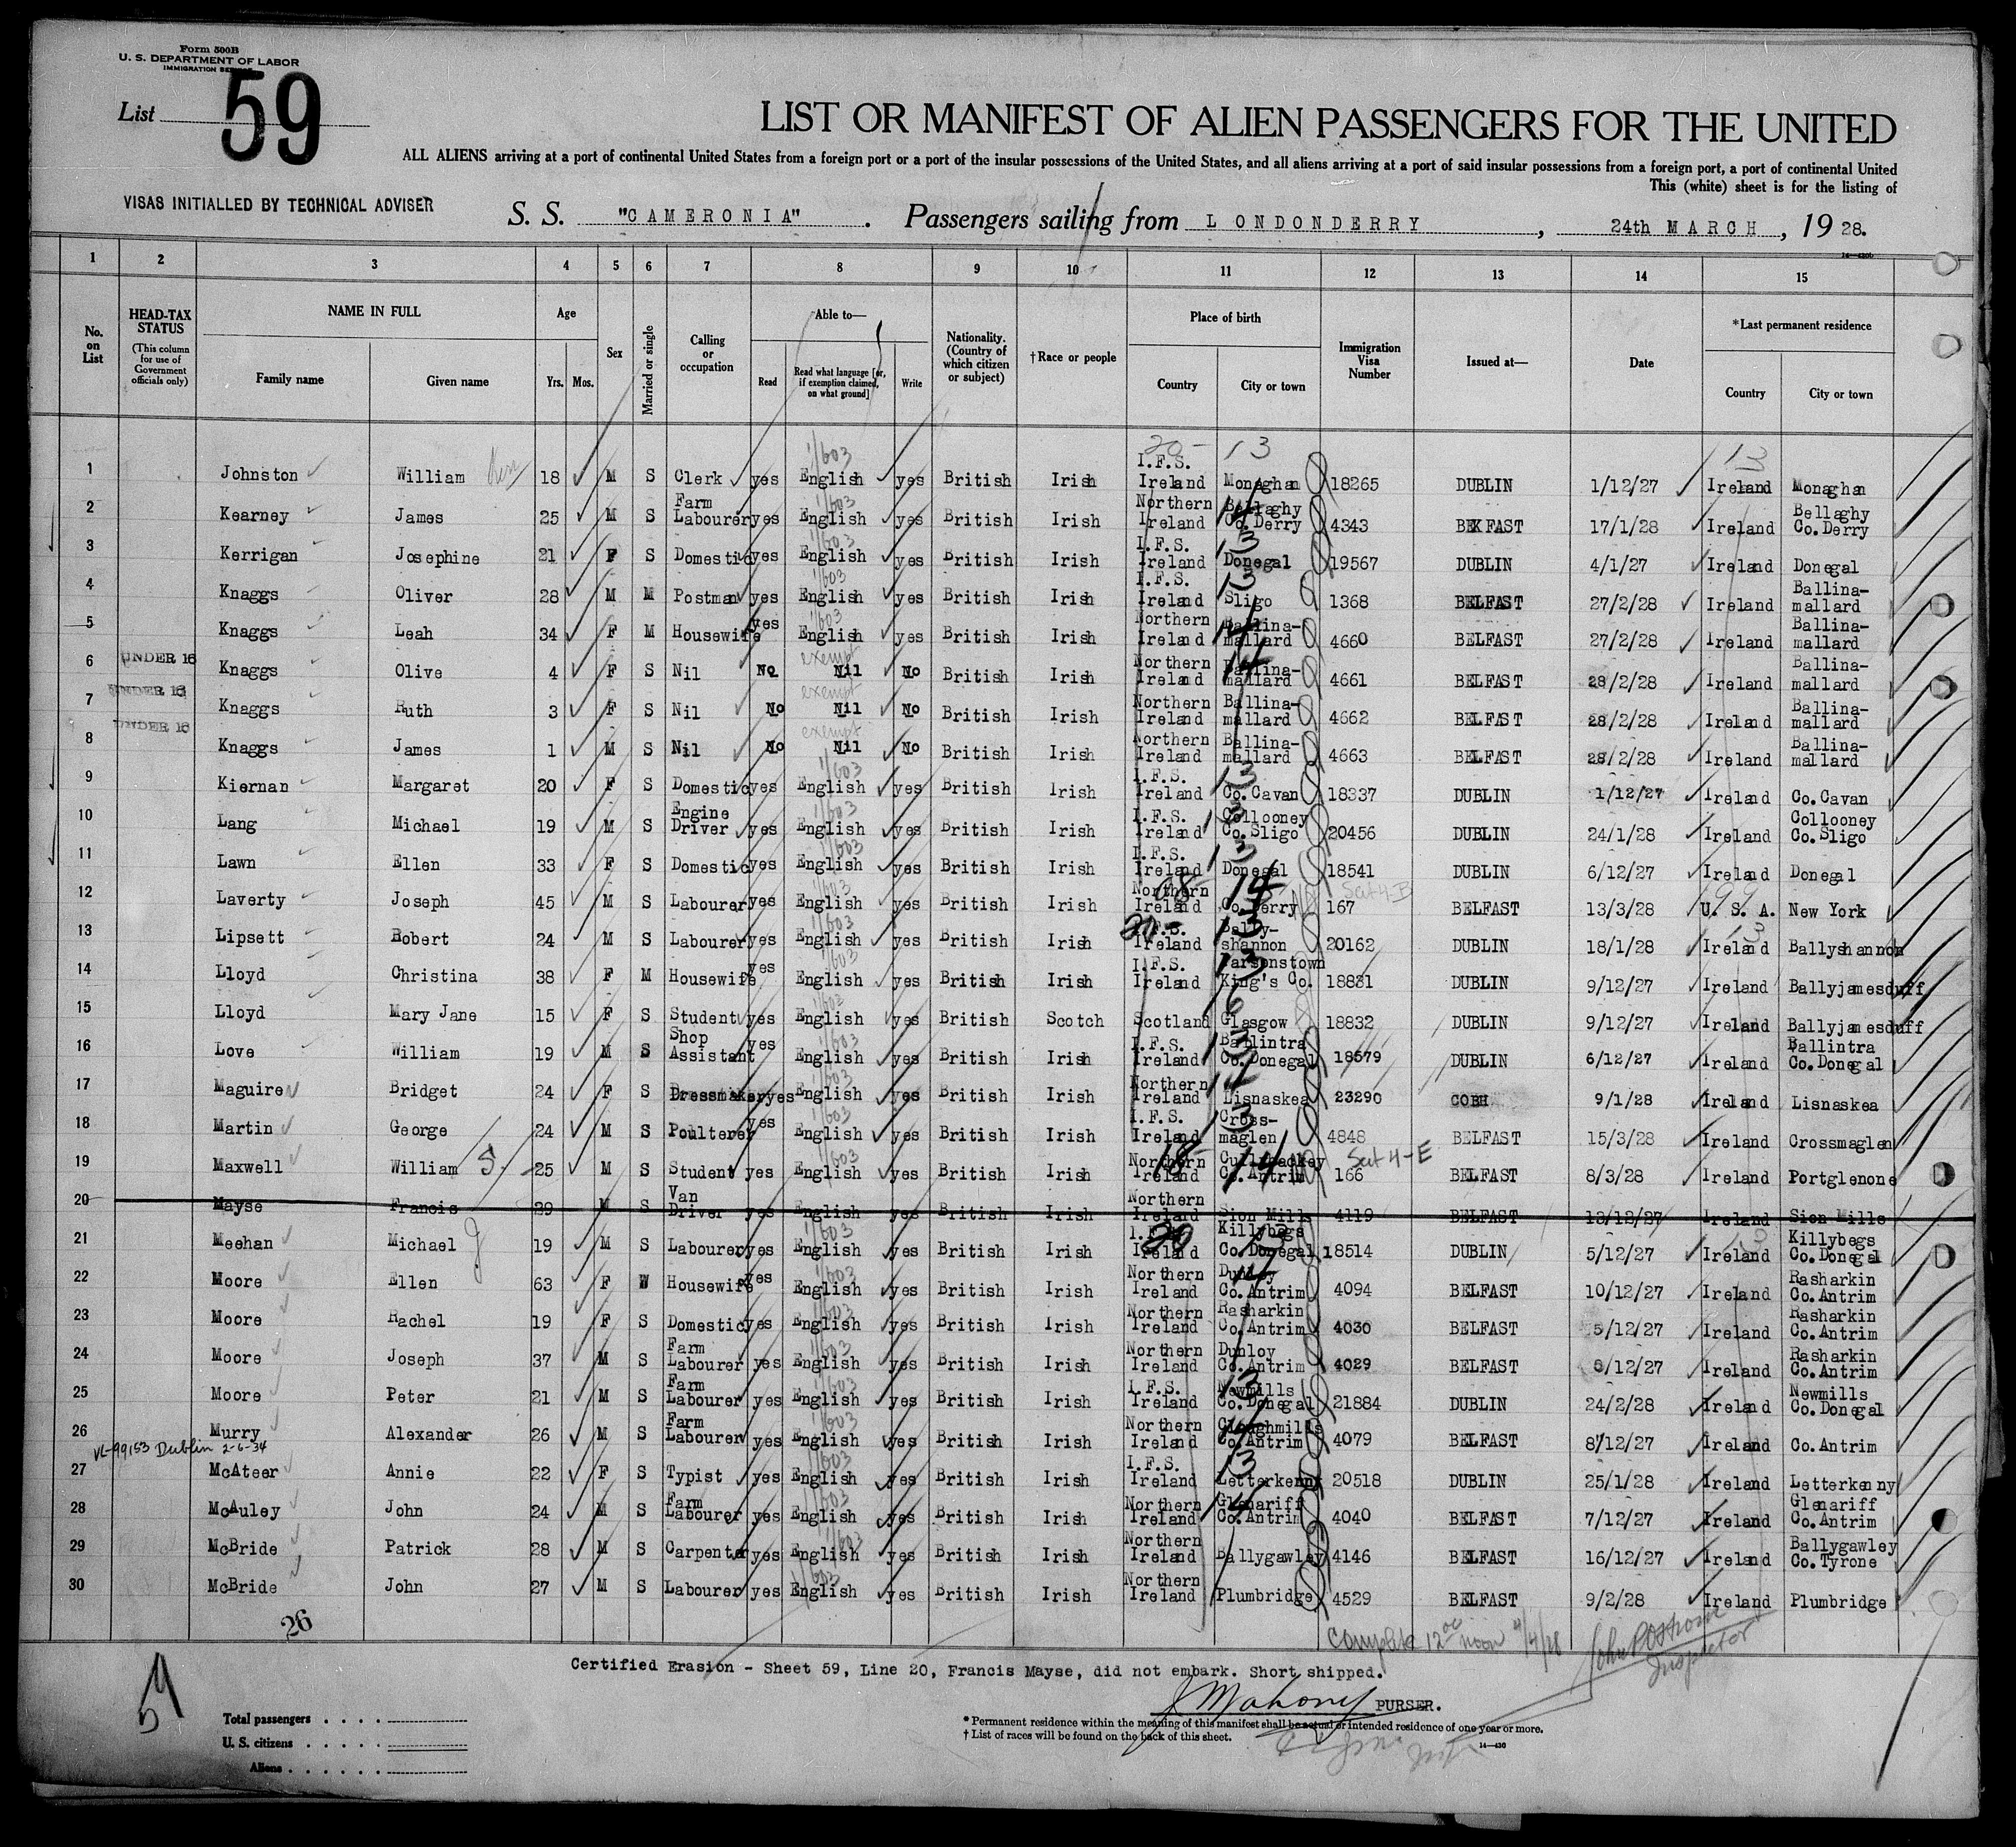 Form 500B
U. S. DEPARTMENT OF LABOR
IMMIGRATION SERVICE
List 59
LIST OR MANIFEST OF ALIEN PASSENGERS FOR THE UNITED
ALL ALIENS arriving at a port of continental United States from a foreign port or a port of the insular possessions of the United States, and all aliens arriving at a port of said insular possessions from a foreign port, a port of continental United
This (white) sheet is for the listing of
VISAS INITIALLED BY TECHNICAL ADVISER
S. S. "CAMERONIA". Passengers sailing from LONDONDERRY, 24th MARCH, 1928.
1 2 3 4 5 6 7 8 9 10 11 12 13 14 15
No. on List
HEAD-TAX STATUS (This column for use of Government officials only)
NAME IN FULL Family name Given name
Age Yrs. Mos.
Sex
Married or single
Calling or occupation
Able to— Read Read what language [or, if exemption claimed, on what ground] Write
Nationality. (Country of which citizen or subject)
†Race or people
Place of birth Country City or town
Immigration Visa Number
Issued at—
Date
*Last permanent residence Country City or town
20- 13 13
1 Johnston William 18 M S Clerk yes English yes British Irish I.F.S. Ireland Monaghan 18265 DUBLIN 1/12/27 Ireland Monaghan
2 Kearney James 25 M S Farm Labourer yes English yes British Irish Northern Ireland Bellaghy Co.Derry 4343 BEKFAST 17/1/28 Ireland Bellaghy Co.Derry
3 Kerrigan Josephine 21 F S Domestic yes English yes British Irish I.F.S. Ireland Donegal 19567 DUBLIN 4/1/27 Ireland Donegal
4 Knaggs Oliver 28 M M Postman yes English yes British Irish I.F.S. Ireland Sligo 1368 BELFAST 27/2/28 Ireland Ballina-mallard
5 Knaggs Leah 34 F M Housewife yes English yes British Irish Northern Ireland Ballina-mallard 4660 BELFAST 27/2/28 Ireland Ballina-mallard
6 UNDER 16 Knaggs Olive 4 F S Nil No exempt Nil No British Irish Northern Ireland Ballina-mallard 4661 BELFAST 28/2/28 Ireland Ballina-mallard
7 UNDER 16 Knaggs Ruth 3 F S Nil No exempt Nil No British Irish Northern Ireland Ballina-mallard 4662 BELFAST 28/2/28 Ireland Ballina-mallard
8 UNDER 16 Knaggs James 1 M S Nil No exempt Nil No British Irish Northern Ireland Ballina-mallard 4663 BELFAST 28/2/28 Ireland Ballina-mallard
9 Kiernan Margaret 20 F S Domestic yes English yes British Irish I.F.S. Ireland Co.Cavan 18337 DUBLIN 1/12/27 Ireland Co.Cavan
10 Lang Michael 19 M S Engine Driver yes English yes British Irish I.F.S. Ireland Collooney Co.Sligo 20456 DUBLIN 24/1/28 Ireland Collooney Co.Sligo
11 Lawn Ellen 33 F S Domestic yes English yes British Irish I.F.S. Ireland Donegal 18541 DUBLIN 6/12/27 Ireland Donegal
12 Laverty Joseph 45 M S Labourer yes English yes British Irish Northern Ireland Co.Derry 167 BELFAST 13/3/28 U. S. A. New York
13 Lipsett Robert 24 M S Labourer yes English yes British Irish I.F.S. Ireland Bally-shannon 20162 DUBLIN 18/1/28 Ireland Ballyshannon
14 Lloyd Christina 38 F M Housewife yes English yes British Irish I.F.S. Ireland Parsonstown King's Co. 18831 DUBLIN 9/12/27 Ireland Ballyjamesduff
15 Lloyd Mary Jane 15 F S Student yes English yes British Scotch Scotland Glasgow 18832 DUBLIN 9/12/27 Ireland Ballyjamesduff
16 Love William 19 M S Shop Assistant yes English yes British Irish I.F.S. Ireland Ballintra Co.Donegal 18579 DUBLIN 6/12/27 Ireland Ballintra Co.Donegal
17 Maguire Bridget 24 F S Dressmaker yes English yes British Irish Northern Ireland Lisnaskea 23290 COBH 9/1/28 Ireland Lisnaskea
18 Martin George 24 M S Poulterer yes English yes British Irish I.F.S. Ireland Cross-maglen 4848 BELFAST 15/3/28 Ireland Crossmaglen
19 Maxwell William S. 25 M S Student yes English yes British Irish Northern Ireland Cullybackey Co.Antrim 166 Sect 4-E BELFAST 8/3/28 Ireland Portglenone
20 Mayse Francis 29 M S Van Driver yes English yes British Irish Northern Ireland Sion Mills 4119 BELFAST 13/12/27 Ireland Sion Mills
21 Meehan Michael J 19 M S Labourer yes English yes British Irish Ireland Killybegs Co.Donegal 18514 DUBLIN 5/12/27 Ireland Killybegs Co.Donegal
22 Moore Ellen 63 F W Housewife yes English yes British Irish Northern Ireland Dunloy Co.Antrim 4094 BELFAST 10/12/27 Ireland Rasharkin Co.Antrim
23 Moore Rachel 19 F S Domestic yes English yes British Irish Northern Ireland Rasharkin Co.Antrim 4030 BELFAST 5/12/27 Ireland Rasharkin Co.Antrim
24 Moore Joseph 37 M S Farm Labourer yes English yes British Irish Northern Ireland Dunloy Co.Antrim 4029 BELFAST /12/27 Ireland Rasharkin Co.Antrim
25 Moore Peter 21 M S Farm Labourer yes English yes British Irish I.F.S. Ireland Newmills Co.Donegal 21884 DUBLIN 24/2/28 Ireland Newmills Co.Donegal
26 Murry Alexander 26 M S Farm Labourer yes English yes British Irish Northern Ireland Cloughmills Co.Antrim 4079 BELFAST 8/12/27 Ireland Co.Antrim
VL-99153 Dublin 2-6-34
27 McAteer Annie 22 F S Typist yes English yes British Irish I.F.S. Ireland Letterkenny 20518 DUBLIN 25/1/28 Ireland Letterkenny
28 McAuley John 24 M S Farm Labourer yes English yes British Irish Northern Ireland Glenariff Co.Antrim 4040 BELFAST 7/12/27 Ireland Glenariff Co.Antrim
29 McBride Patrick 28 M S Carpenter yes English yes British Irish Northern Ireland Ballygawley 4146 BELFAST 16/12/27 Ireland Ballygawley Co.Tyrone
30 McBride John 27 M S Labourer yes English yes British Irish Northern Ireland Plumbridge 4529 BELFAST 9/2/28 Ireland Plumbridge
26
Complete 12 00 noon 4/4/28
Inspector
Certified Erasion - Sheet 59, Line 20, Francis Mayse, did not embark. Short shipped.
J Mahony PURSER.
59
Total passengers
U. S. citizens
Aliens
* Permanent residence within the meaning of this manifest shall be actual or intended residence of one year or more.
† List of races will be found on the back of this sheet.
14—430